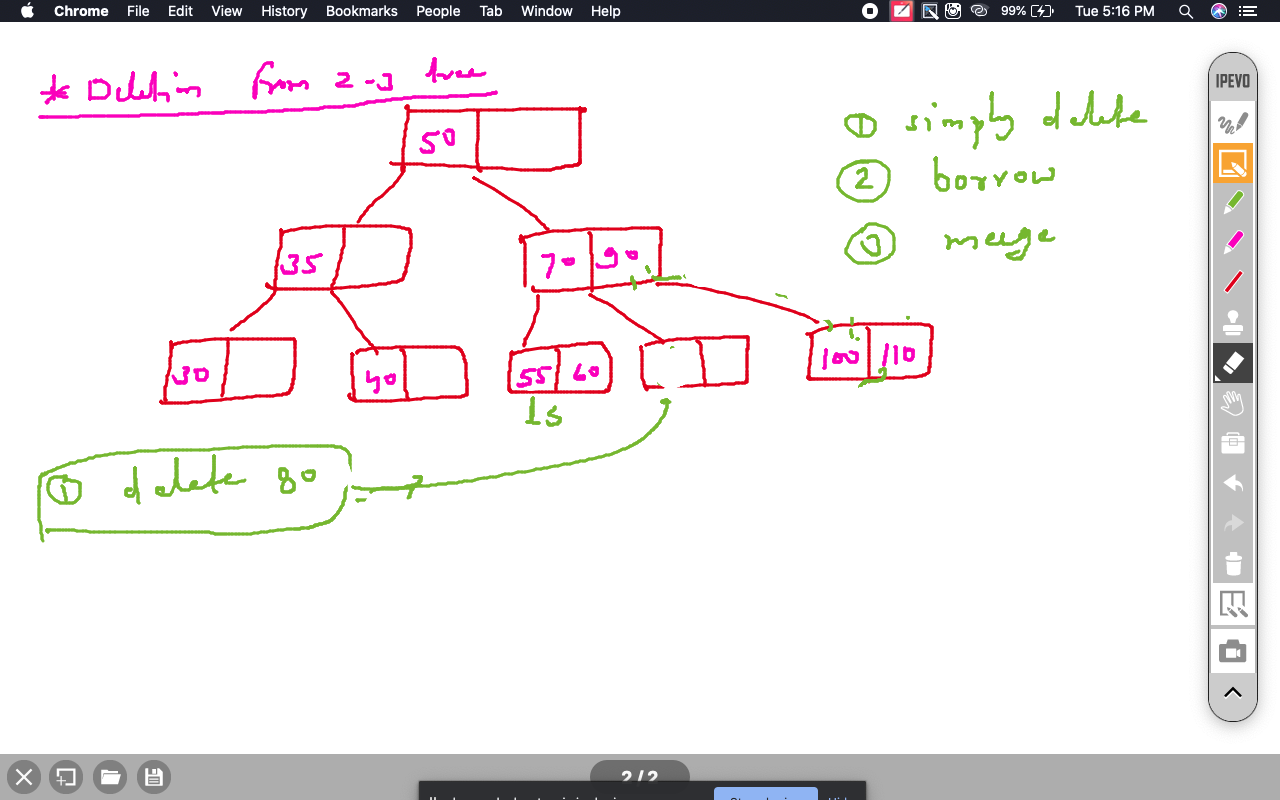 Chrome File Edit View History Bookmarks People Tab Window Help 99% Tue 5:16 PM
* Deletion from 2-3 tree
IPEVO
① simply delete
② borrow
③ merge
50
35
70 90
30
40
55 60
100 110
LS
① delete 80
2 / 2